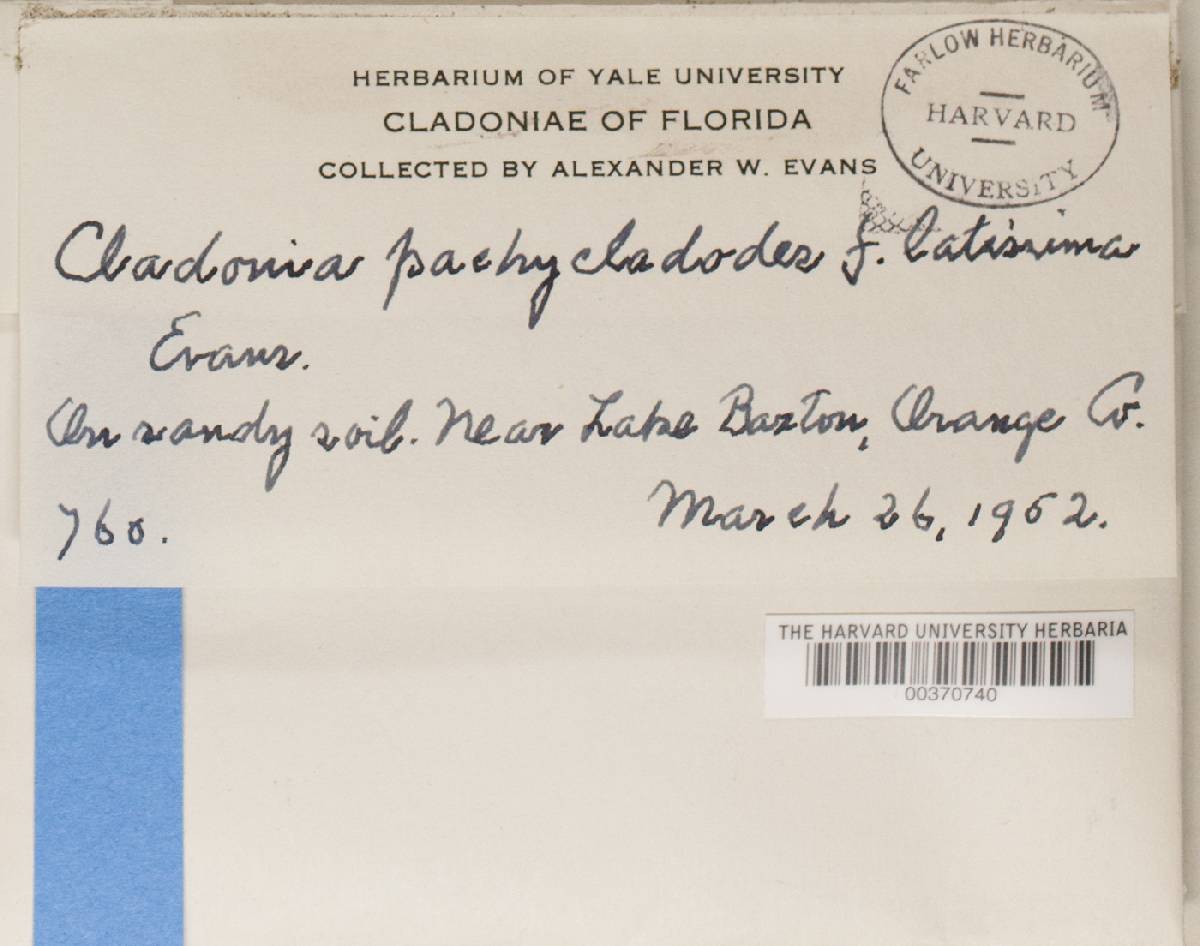 HERBARIUM OF YALE UNIVERSITY
CLADONIAE OF FLORIDA
COLLECTED BY ALEXANDER W. EVANS
FARLOW HERBARIUM
HARVARD
UNIVERSITY
Cladonia pachycladodes f. latissima
Evans.
On sandy soil. Near Lake Barton, Orange Co.
760. March 26, 1952.
THE HARVARD UNIVERSITY HERBARIA
00370740